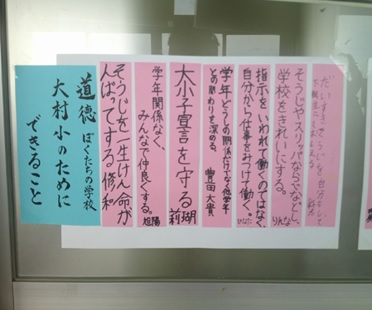 そうじやスリッパならべなどし、
学校をきれいにする。 りんな
指示をいわれて働くのではなく、
自分から仕事をみつけて働く。
学年どうしの関係だけでなく他学年
との関わりを深める。 豊田大貴
大小子宣言を守る 莉瑚
学年関係なく、
みんなで仲良くする。 旭陽
そうじを一生けん命が
んばってする 修和
道徳 ぼくたちの学校
大村小のために
できること